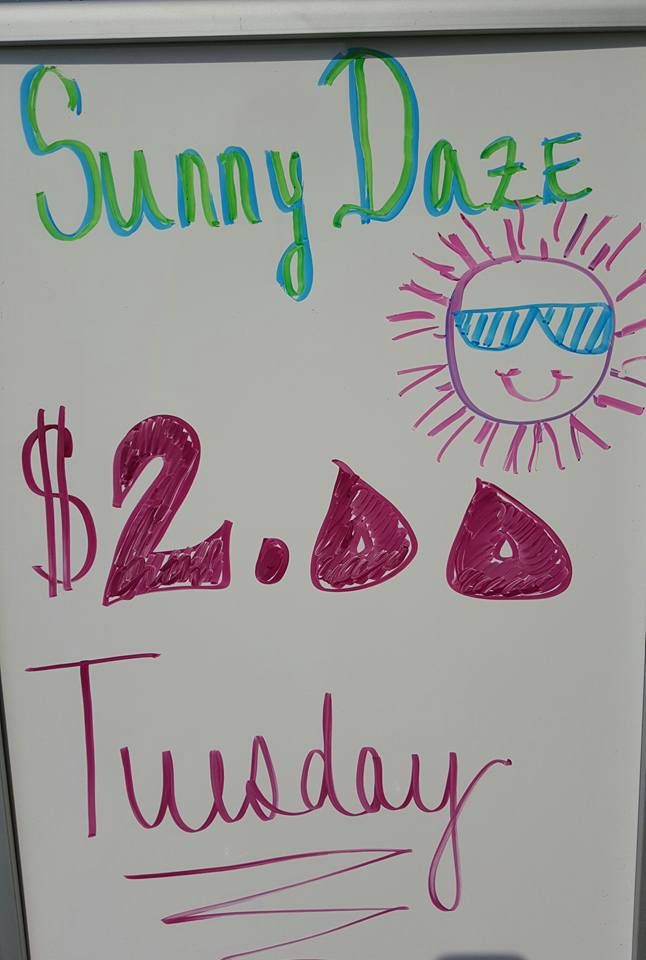 Sunny DazE
$2.00
Tuesday